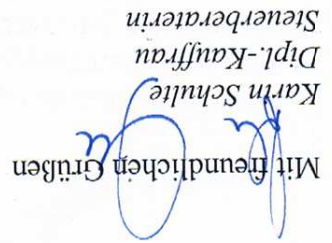 Mit freundlichen Grüßen
Karin Schulte
Dipl.-Kauffrau
Steuerberaterin